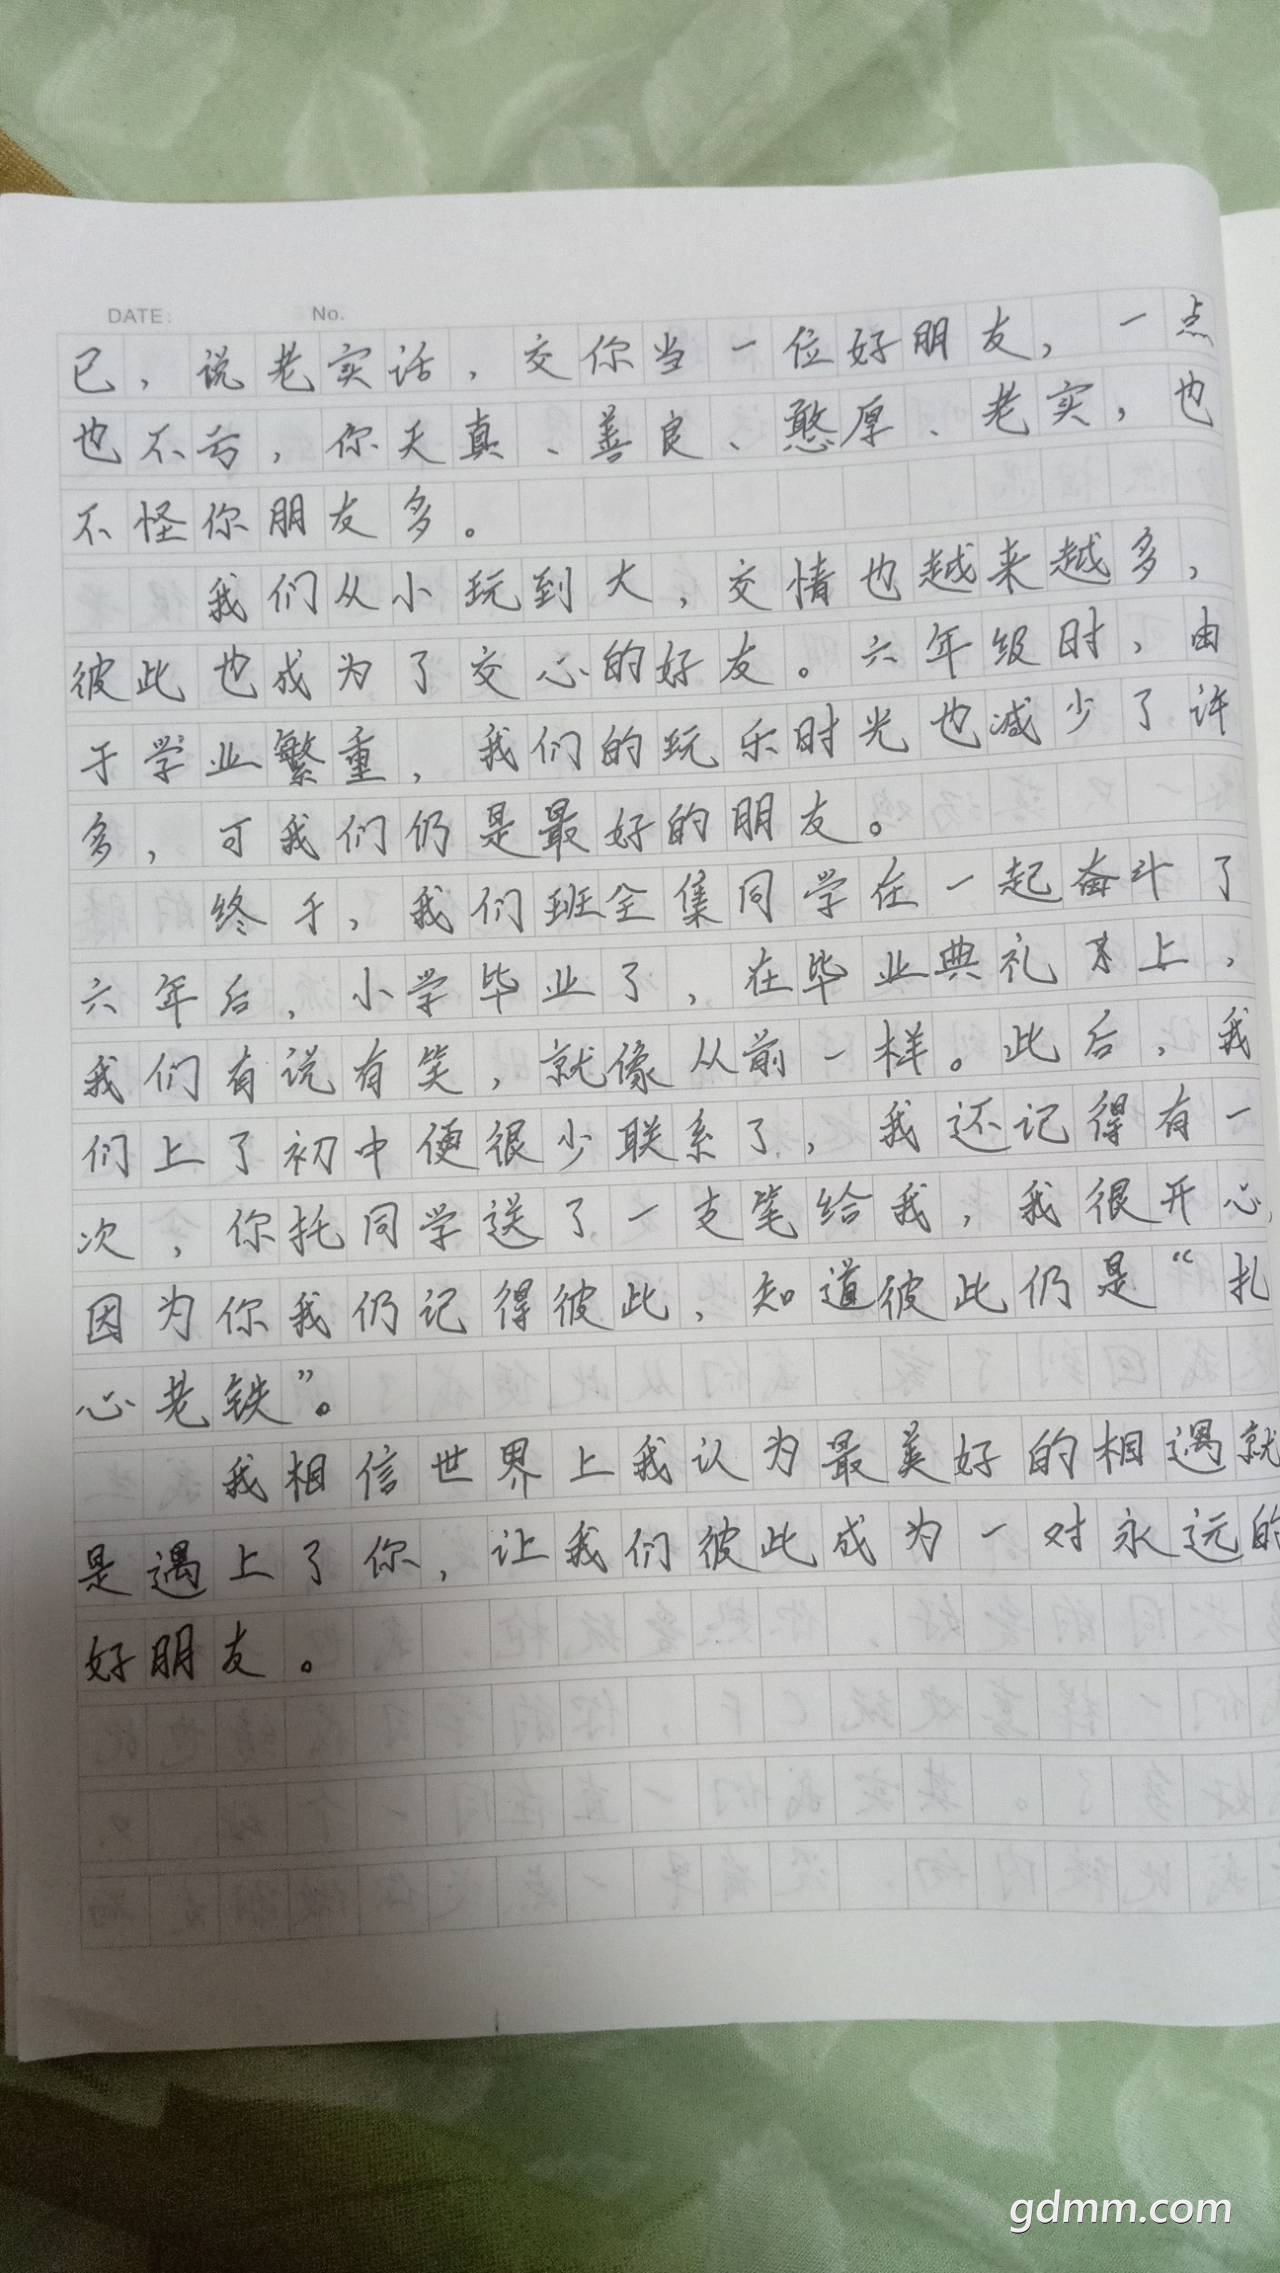 DATE: No.
已，说老实话，交你当一位好朋友，一点
也不亏，你天真、善良、憨厚、老实，也
不怪你朋友多。
我们从小玩到大，交情也越来越多，
彼此也成为了交心的好友。六年级时，由
于学业繁重，我们的玩乐时光也减少了许
多，可我们仍是最好的朋友。
终于，我们班全集同学在一起奋斗了
六年后，小学毕业了，在毕业典礼上，
我们有说有笑，就像从前一样。此后，我
们上了初中便很少联系了，我还记得有一
次，你托同学送了一支笔给我，我很开心，
因为你我仍记得彼此，知道彼此仍是“扎
心老铁”。
我相信世界上我认为最美好的相遇就
是遇上了你，让我们彼此成为一对永远的
好朋友。
gdmm.com